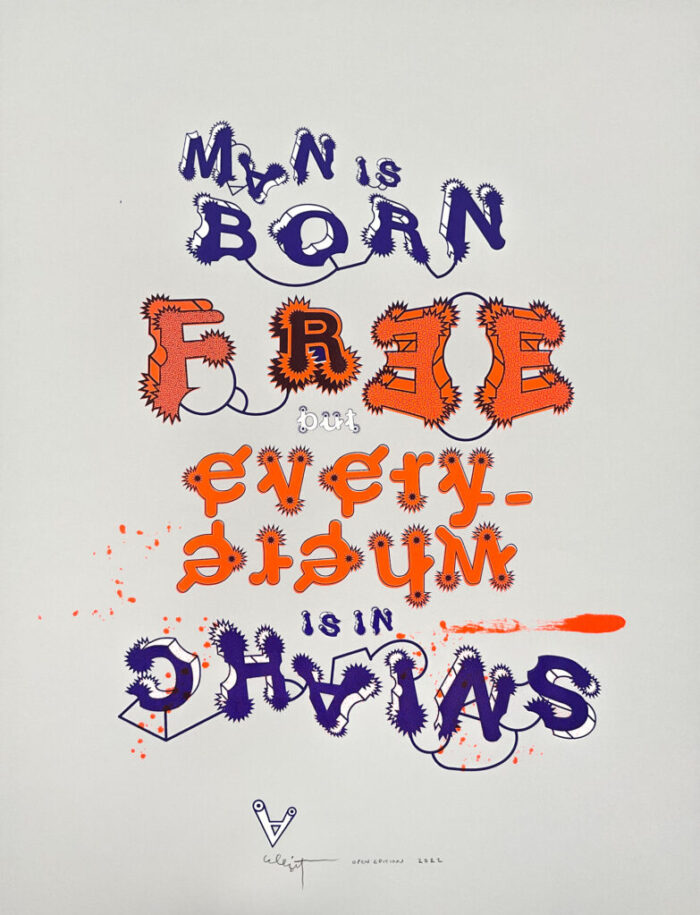 MAN IS
BORN
FREE
but
every-
where
IS IN
CHAINS
OPEN EDITION 2022